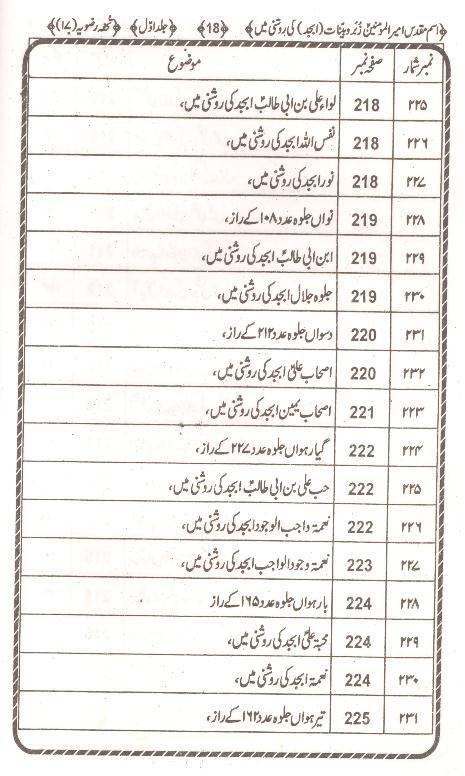 ﴿اسم مقدس امیر المومنینؑ زُبُر و بینات (ابجد) کی روشنی میں﴾ ﴿18﴾ ﴿جلد اوّل﴾ ﴿تحفہ رضویہ (۱۷)﴾
نمبر شمار صفحہ نمبر موضوع
۲۲۵ 218 لواء علی بن ابی طالبؑ ابجد کی روشنی میں،
۲۲۶ 218 نفس اللہ ابجد کی روشنی میں،
۲۲۷ 218 نور ابجد کی روشنی میں،
۲۲۸ 219 نواں جلوہ عدد ۱۰۸ کے راز،
۲۲۹ 219 ابن ابی طالبؑ ابجد کی روشنی میں،
۲۳۰ 219 جلوہ جلال ابجد کی روشنی میں،
۲۳۱ 220 دسواں جلوہ عدد ۲۱۲ کے راز،
۲۳۲ 220 اصحاب علیؑ ابجد کی روشنی میں،
۲۲۳ 221 اصحاب یمین ابجد کی روشنی میں،
۲۲۴ 222 گیارہواں جلوہ عدد ۲۲۷ کے راز،
۲۲۵ 222 حب علی بن ابی طالبؑ ابجد کی روشنی میں،
۲۲۶ 222 نعمۃ واجب الوجود ابجد کی روشنی میں،
۲۲۷ 223 نعمۃ وجود الواجب ابجد کی روشنی میں،
۲۲۸ 224 بارہواں جلوہ عدد ۱۶۵ کے راز
۲۲۹ 224 محبۃ علیؑ ابجد کی روشنی میں،
۲۳۰ 224 نعمۃ ابجد کی روشنی میں،
۲۳۱ 225 تیرہواں جلوہ عدد ۱۶۲ کے راز،